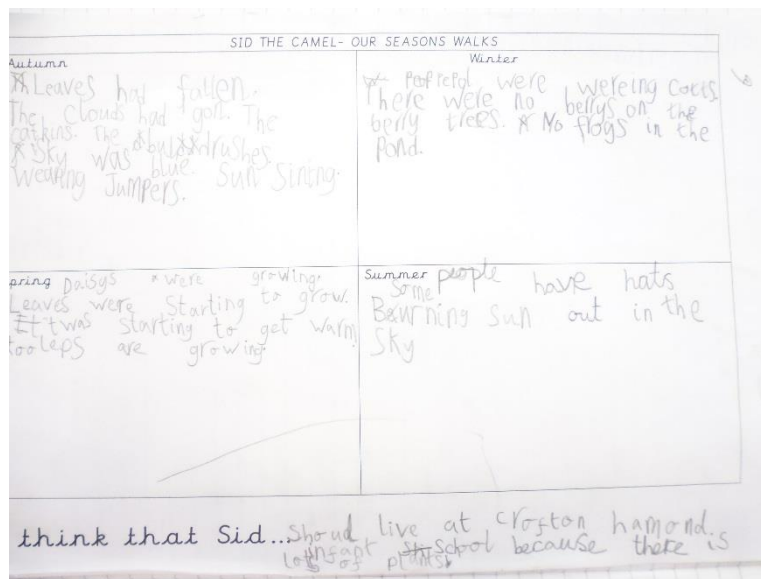 SID THE CAMEL- OUR SEASONS WALKS
Autumn
Leaves had fallen.
The clouds had gon. The
catkins. The bulrushes.
Sky was blue. Sun Sining.
Wearing Jumpers.
Winter
were wereing cocts
There were no berrys on the
berry trees. No frogs in the
Pond.
pring Daisys were growing.
Leaves were Starting to grow.
It was starting to get warm
tooleps are growing.
Summer
Some people have hats
Burning Sun out in the
Sky
think that Sid... Shoud live at crofton hamond.
infant School because there is
lots of plants.